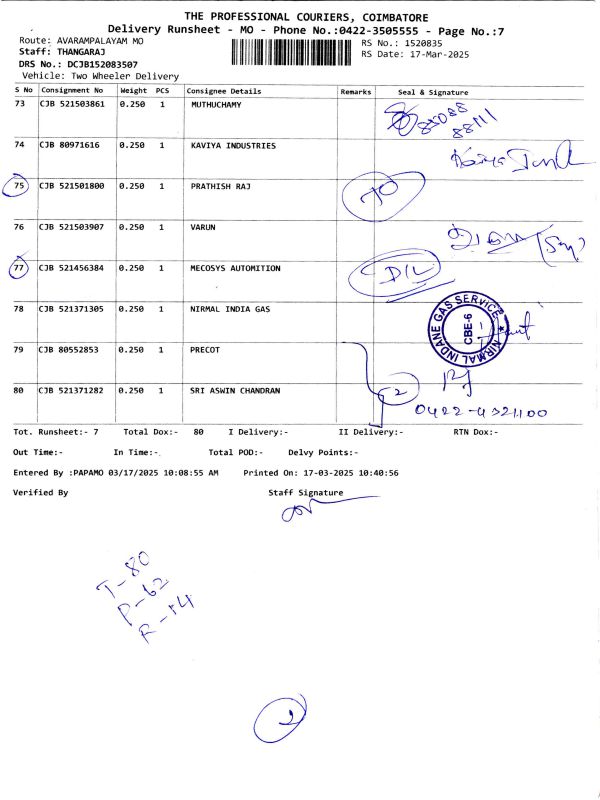 THE PROFESSIONAL COURIERS, COIMBATORE
Delivery Runsheet - MO - Phone No.:0422-3505555 - Page No.:7
Route: AVARAMPALAYAM MO
RS No.: 1520835
Staff: THANGARAJ
RS Date: 17-Mar-2025
DRS No.: DCJB152083507
Vehicle: Two Wheeler Delivery
S No Consignment No Weight PCS Consignee Details Remarks Seal & Signature
73 CJB 521503861 0.250 1 MUTHUCHAMY
85088
88111
74 CJB 80971616 0.250 1 KAVIYA INDUSTRIES
75 CJB 521501800 0.250 1 PRATHISH RAJ
76 CJB 521503907 0.250 1 VARUN
77 CJB 521456384 0.250 1 MECOSYS AUTOMITION D/L
78 CJB 521371305 0.250 1 NIRMAL INDIA GAS
NIRMAL INDANE GAS SERVICE
CBE-6
79 CJB 80552853 0.250 1 PRECOT
80 CJB 521371282 0.250 1 SRI ASWIN CHANDRAN 2
0422-4321100
Tot. Runsheet:- 7 Total Dox:- 80 I Delivery:- II Delivery:- RTN Dox:-
Out Time:- In Time:- Total POD:- Delvy Points:-
Entered By :PAPAMO 03/17/2025 10:08:55 AM Printed On: 17-03-2025 10:40:56
Verified By Staff Signature
T-80
P-62
R-14
2